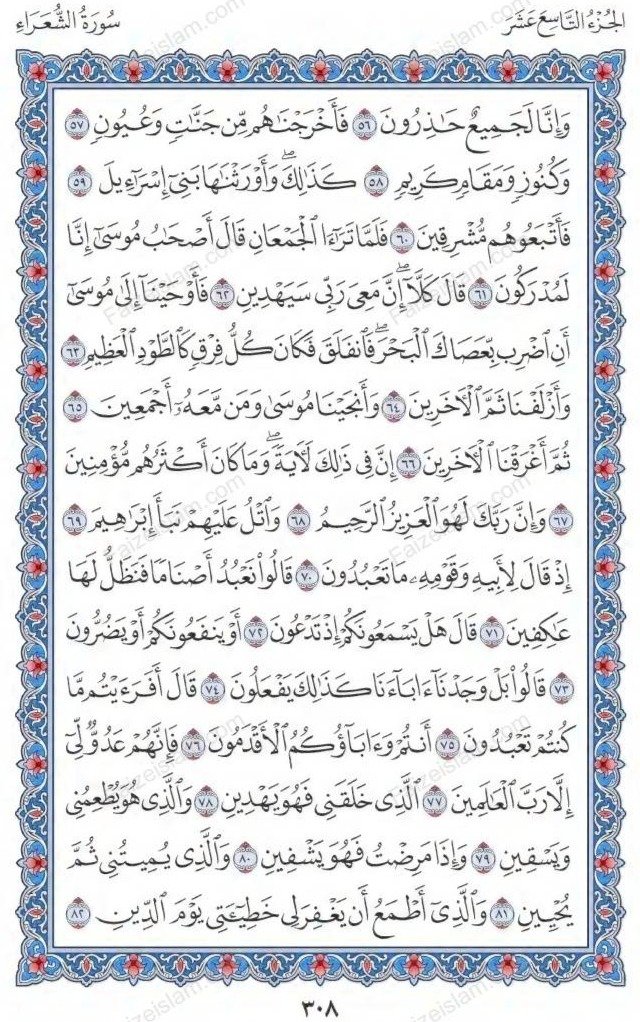 الجُزْءُ التَّاسِعَ عَشَرَ
سُورَةُ الشُّعَرَاءِ
وَإِنَّا لَجَمِيعٌ حَٰذِرُونَ ٥٦ فَأَخْرَجْنَٰهُم مِّن جَنَّٰتٍ وَعُيُونٍ ٥٧
وَكُنُوزٍ وَمَقَامٍ كَرِيمٍ ٥٨ كَذَٰلِكَۖ وَأَوْرَثْنَٰهَا بَنِىٓ إِسْرَٰٓءِيلَ ٥٩
فَأَتْبَعُوهُم مُّشْرِقِينَ ٦٠ فَلَمَّا تَرَٰٓءَا ٱلْجَمْعَانِ قَالَ أَصْحَٰبُ مُوسَىٰٓ إِنَّا
لَمُدْرَكُونَ ٦١ قَالَ كَلَّآۖ إِنَّ مَعِىَ رَبِّى سَيَهْدِينِ ٦٢ فَأَوْحَيْنَآ إِلَىٰ مُوسَىٰٓ
أَنِ ٱضْرِب بِّعَصَاكَ ٱلْبَحْرَۖ فَٱنفَلَقَ فَكَانَ كُلُّ فِرْقٍ كَٱلطَّوْدِ ٱلْعَظِيمِ ٦٣
وَأَزْلَفْنَا ثَمَّ ٱلْءَاخَرِينَ ٦٤ وَأَنجَيْنَا مُوسَىٰ وَمَن مَّعَهُۥٓ أَجْمَعِينَ ٦٥
ثُمَّ أَغْرَقْنَا ٱلْءَاخَرِينَ ٦٦ إِنَّ فِى ذَٰلِكَ لَءَايَةًۖ وَمَا كَانَ أَكْثَرُهُم مُّؤْمِنِينَ
٦٧ وَإِنَّ رَبَّكَ لَهُوَ ٱلْعَزِيزُ ٱلرَّحِيمُ ٦٨ وَٱتْلُ عَلَيْهِمْ نَبَأَ إِبْرَٰهِيمَ ٦٩
إِذْ قَالَ لِأَبِيهِ وَقَوْمِهِۦ مَا تَعْبُدُونَ ٧٠ قَالُوا۟ نَعْبُدُ أَصْنَامًا فَنَظَلُّ لَهَا
عَٰكِفِينَ ٧١ قَالَ هَلْ يَسْمَعُونَكُمْ إِذْ تَدْعُونَ ٧٢ أَوْ يَنفَعُونَكُمْ أَوْ يَضُرُّونَ
٧٣ قَالُوا۟ بَلْ وَجَدْنَآ ءَابَآءَنَا كَذَٰلِكَ يَفْعَلُونَ ٧٤ قَالَ أَفَرَءَيْتُم مَّا
كُنتُمْ تَعْبُدُونَ ٧٥ أَنتُمْ وَءَابَآؤُكُمُ ٱلْأَقْدَمُونَ ٧٦ فَإِنَّهُمْ عَدُوٌّ لِّىٓ
إِلَّا رَبَّ ٱلْعَٰلَمِينَ ٧٧ ٱلَّذِى خَلَقَنِى فَهُوَ يَهْدِينِ ٧٨ وَٱلَّذِى هُوَ يُطْعِمُنِى
وَيَسْقِينِ ٧٩ وَإِذَا مَرِضْتُ فَهُوَ يَشْفِينِ ٨٠ وَٱلَّذِى يُمِيتُنِى ثُمَّ
يُحْيِينِ ٨١ وَٱلَّذِىٓ أَطْمَعُ أَن يَغْفِرَ لِى خَطِيٓـَٔتِى يَوْمَ ٱلدِّينِ ٨٢
٣٠٨
Faizeislam.com